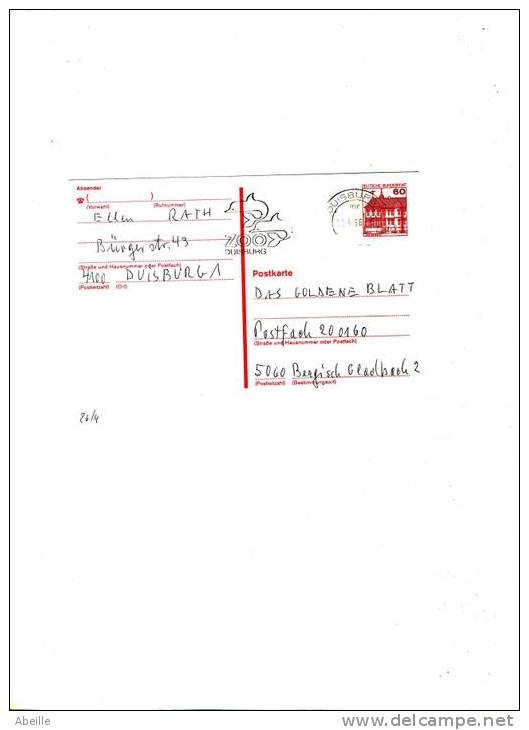 Absender
☎ ( )
(Vorwahl) (Rufnummer)
Ellen RATH
Bürgerstr. 43
(Straße und Hausnummer oder Postfach)
4100 DUISBURG 1
(Postleitzahl) (Ort)
ZOO
DUISBURG
DUISBURG
mr
DEUTSCHE BUNDESPOST
60
Postkarte
DAS GOLDENE BLATT
Postfach 200160
(Straße und Hausnummer oder Postfach)
5060 Bergisch Gladbach 2
(Postleitzahl) (Bestimmungsort)
26/4
Abeille
www.delcampe.net